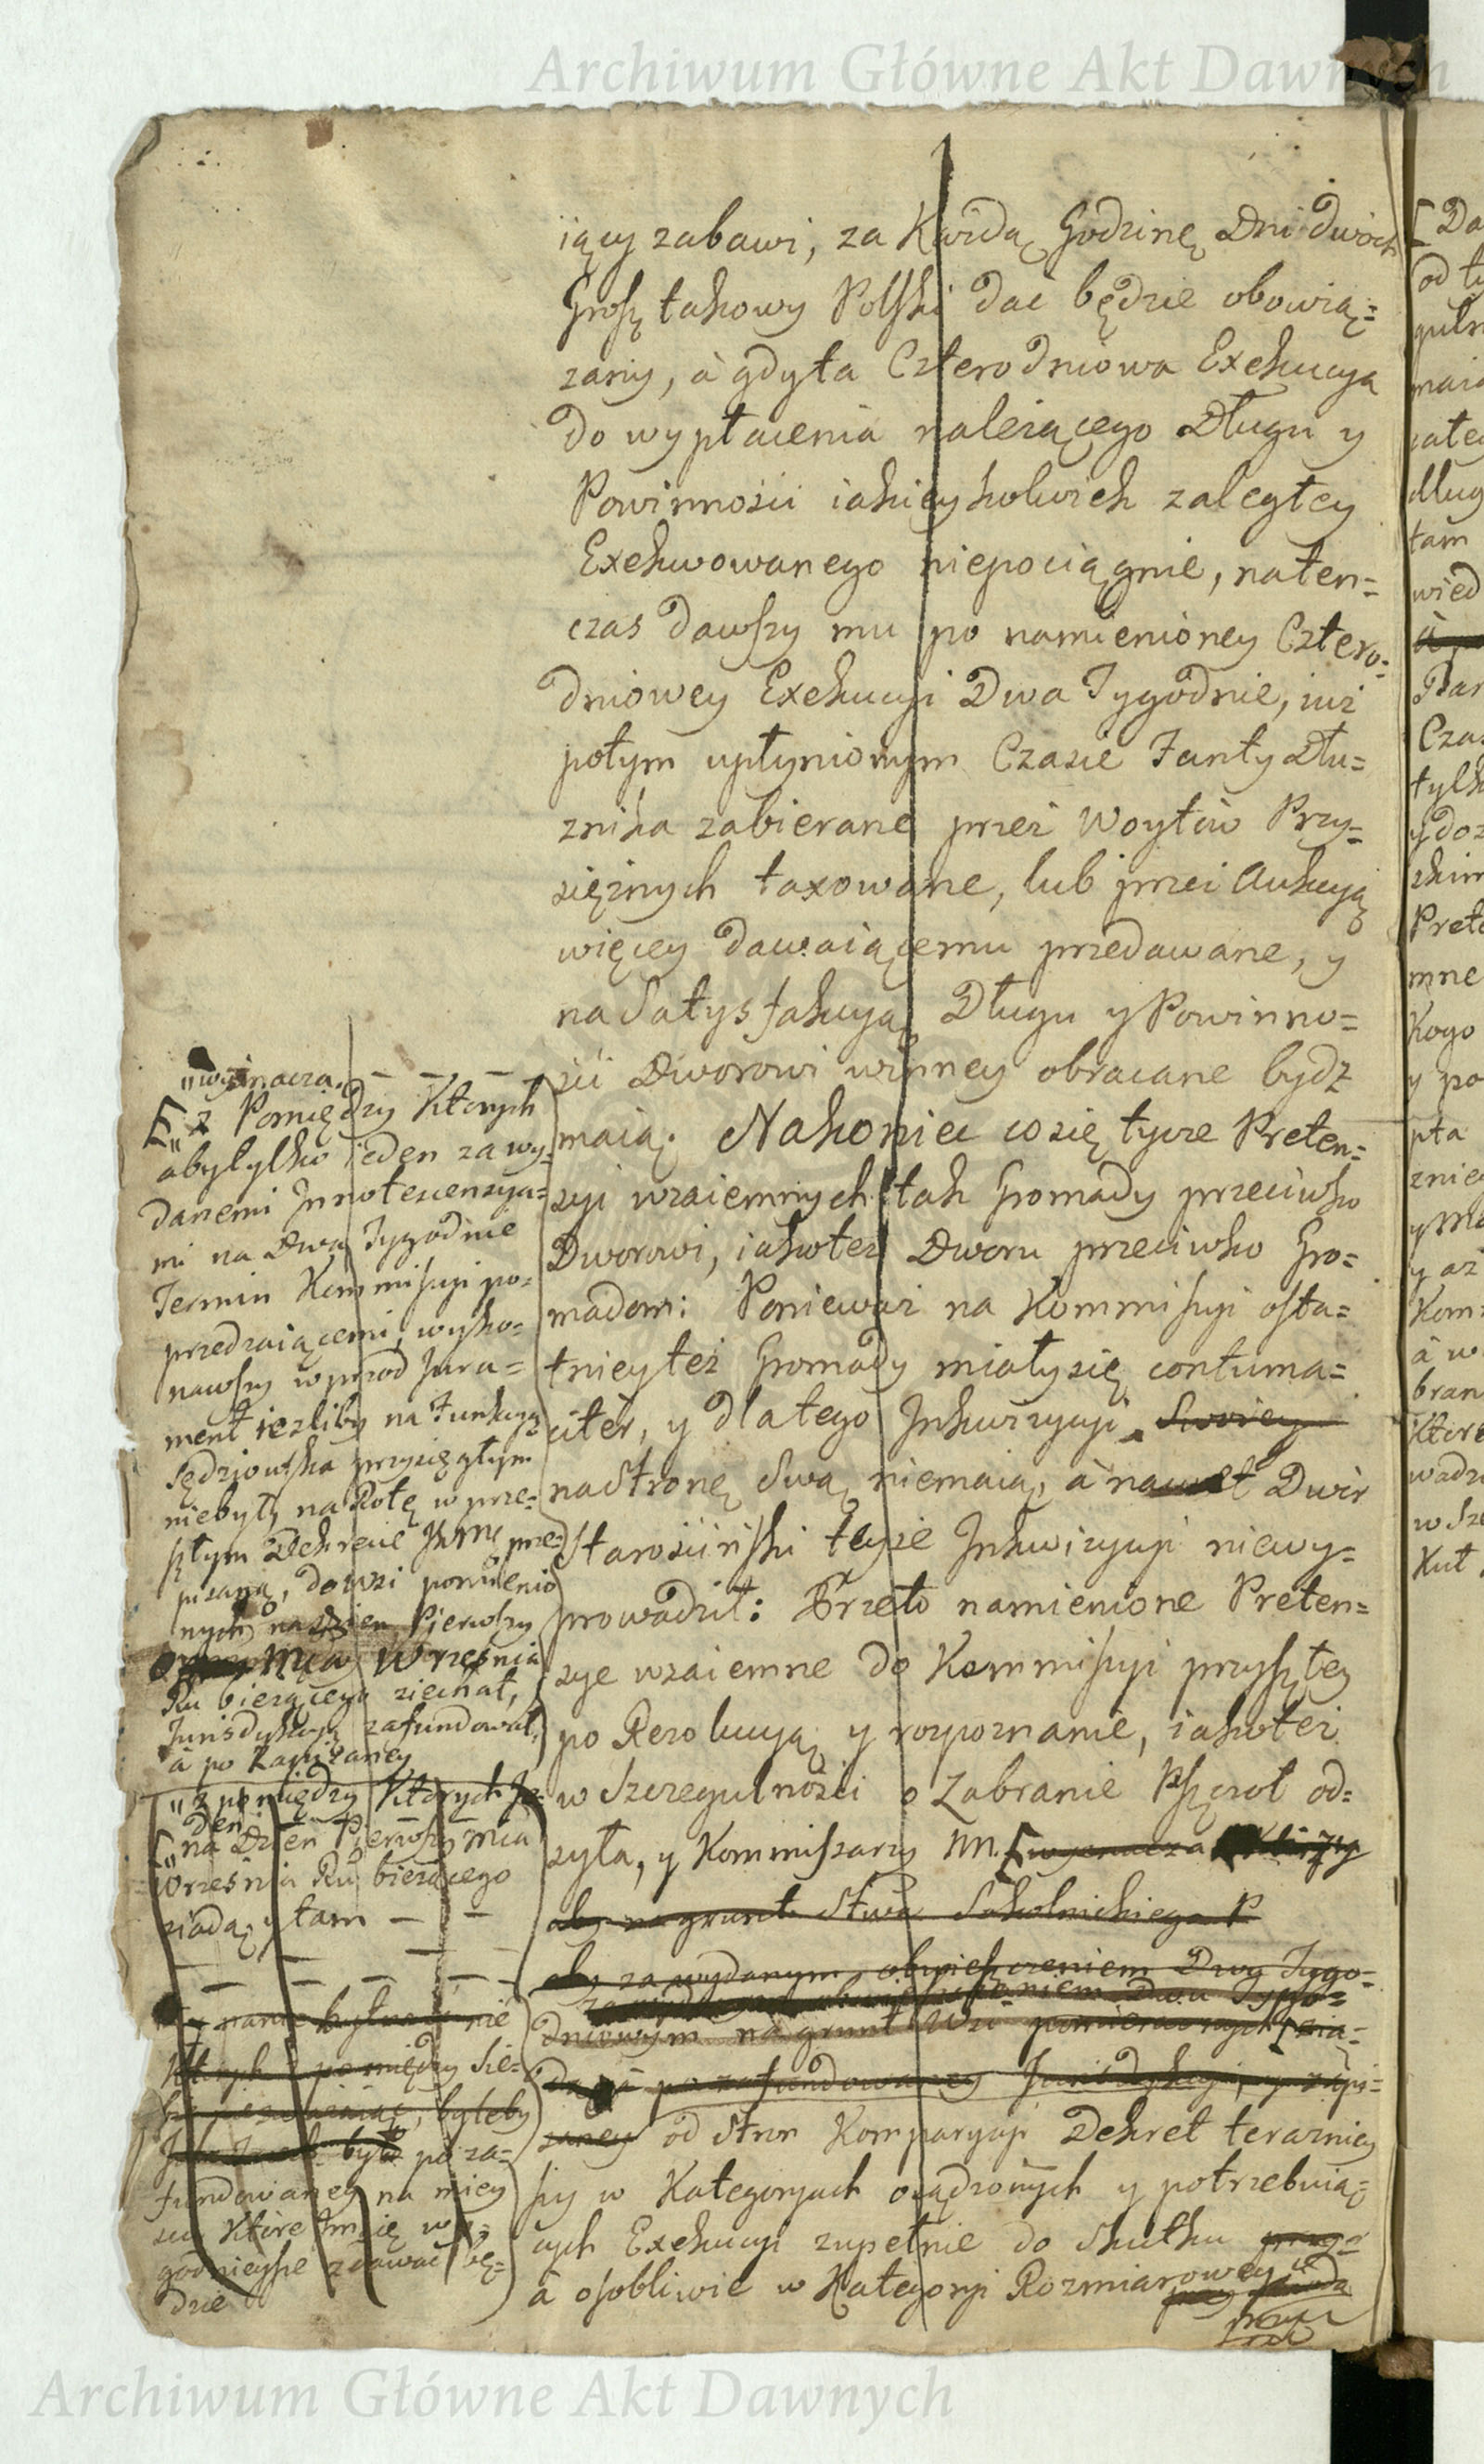 Archiwum Główne Akt Dawnych
iący zabawi, za Kożdą Godzinę Dni dwóch
Grosz takowy Polski dać będzie obowią=
zany, à gdy ta Czterodniowa Exekucya
do wypłacenia należącego Długu y
Powinności iakieykolwiek zaległey
Exekwowanego niepociągnie, naten=
czas dawszy mu po namienioney Cztero=
dniowey Exekucyi Dwa Tygodnie, iuż
potym upłynionym Czasie Fanty Dłu=
znika zabierane przez Woytów Przy=
siężnych taxowane, lub przez Aukcyą
więcey dawaiącemu przedawane, y
na Satysfakcyą Długu y Powinno=
ści Dworowi winney obracane bydz
maią. Nakoniec co się tycze Preten=
syi wzaiemnych tak Gromady przeciwko
Dworowi, iakoteż Dworu przeciwko Gro=
madom: Ponieważ na Kommissyi osta=
tnieyteż Gromady miały się contuma=
citèr, y dlatego Inkwizycyi Swoiey
na Stronę Swą niemaią, à nawet Dwór
Starościński teyże Inkwizycyi niewy=
prowadził: Przeto namienione Preten=
sye wzaiemne do Kommissyi przyszłey
po Rezolucyą y rozpoznanie, iakoteż
w Szczegulności o Zabranie Pszczoł od=
syła, y Kommissarzy NN. [wyznacza Którzy
aby na grunt Stwa Sokolnickiego P
aby za wydanym obwieszczeniem Dwu Tygo=
dniowym na grunt Wsi pomienionych [zia=
dą à po zafundowaney Jurisdykcyi, y zapi=
saney od Stron Komparycyi Dekret terazniey
szy w Kategoryach osądzonych y potrzebuią=
cych Exekucyi zupełnie do Skutku
à osobliwie w Kategoryi Rozmiarowey
"wyznacza. — — —
["z Pomiędzy Których
aby tylko ieden za wy=
danemi Innotescencya=
mi na Dwa Tygodnie
Termin Kommissyi po=
przedzaiącemi, wyko=
nawszy wprzod Jura=
ment iezliby na Funkcyą
Sędziowską przysięgłym
niebył, na Rotę w prze=
szłym Dekrecie JKMci prze=
pisaną, do wsi pomienio
nych na dzien Pierwszy
Mca Września
Ru bieżącego ziechał,
Jurisdykcyą zafundował,
à po Zapisaney
"z pomiędzy Których Je=
den
["na Dzień Pierwszy Mca
Września Ru bieżącego
ziadą y tam — —
Których z pomiędzy Sie=
byleby
był po za=
fundowaney na miey
scu Które Jm się wy=
godnieysze zdawać bę=
dzie
[Da
od ty
maią
dług
tam
wied
Czas
tylk
y doz
Prete
mne
Kogo
y po
pła
y Ma
y aż
Kom=
à w
bran
Które
w Sze
Archiwum Główne Akt Dawnych